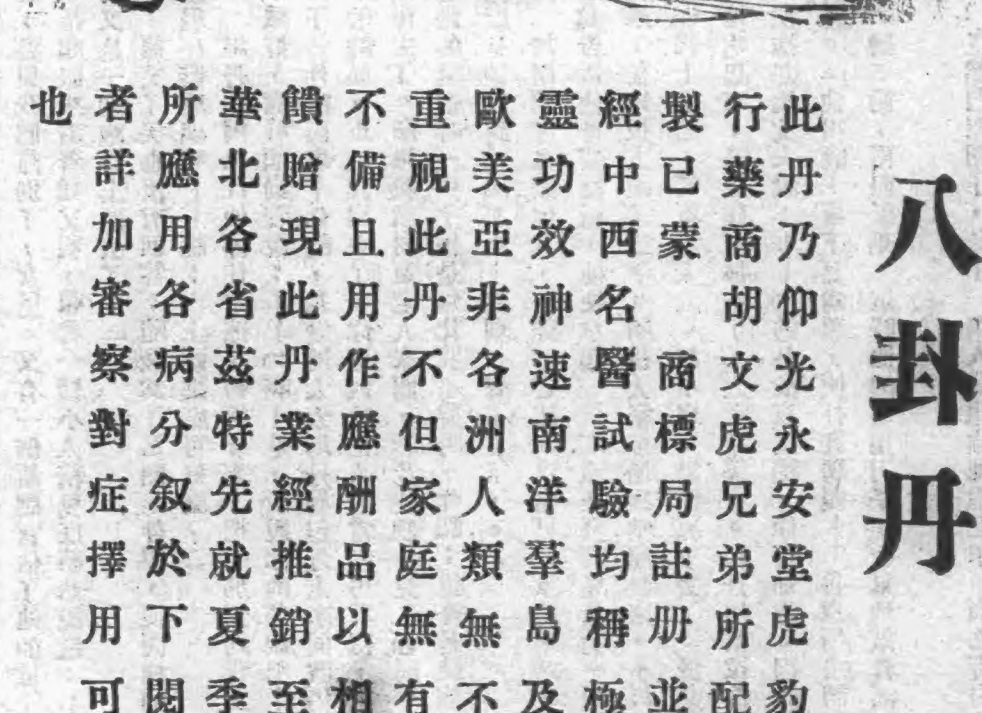 八卦丹
此丹乃仰光永安堂虎豹
行藥商胡文虎兄弟所配
製已蒙 商標局註册並
經中西名醫試驗均稱極
靈功效神速南洋羣島及
歐美亞非各洲人類無不
重視此丹不但家庭無有
不備且用作應酬品以相
饋贈現此丹業經推銷至
華北各省茲特先就夏季
所應用各病分叙於下閱
者詳加審察對症擇用可
也